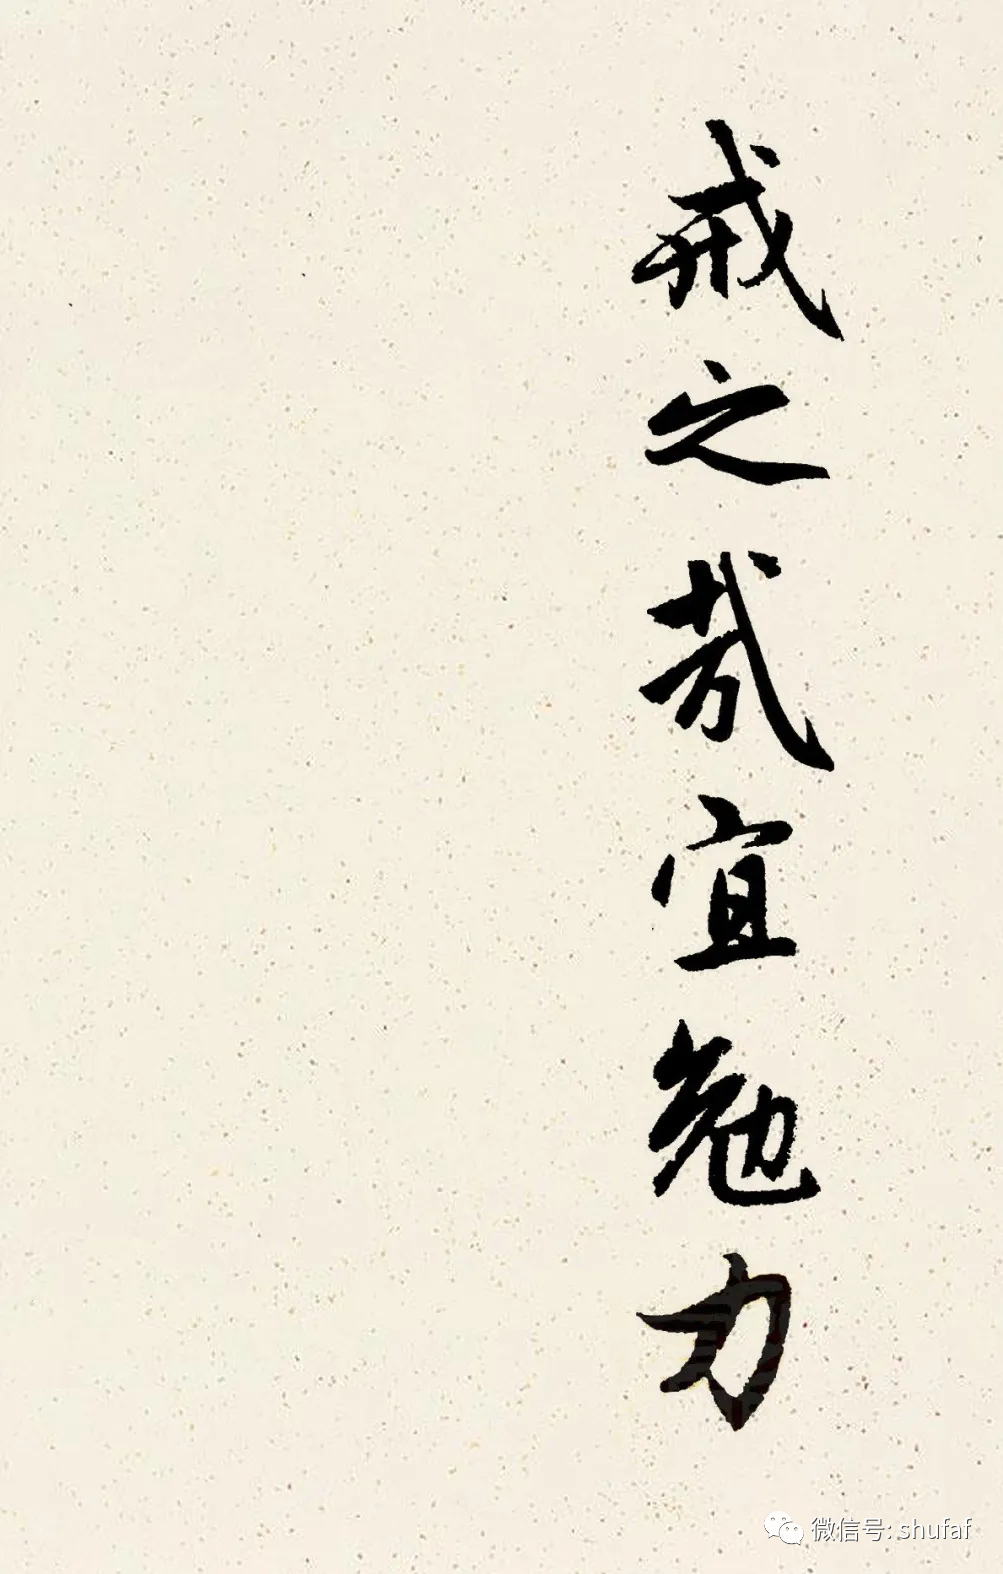 戒之哉宜勉力
微信号: shufaf